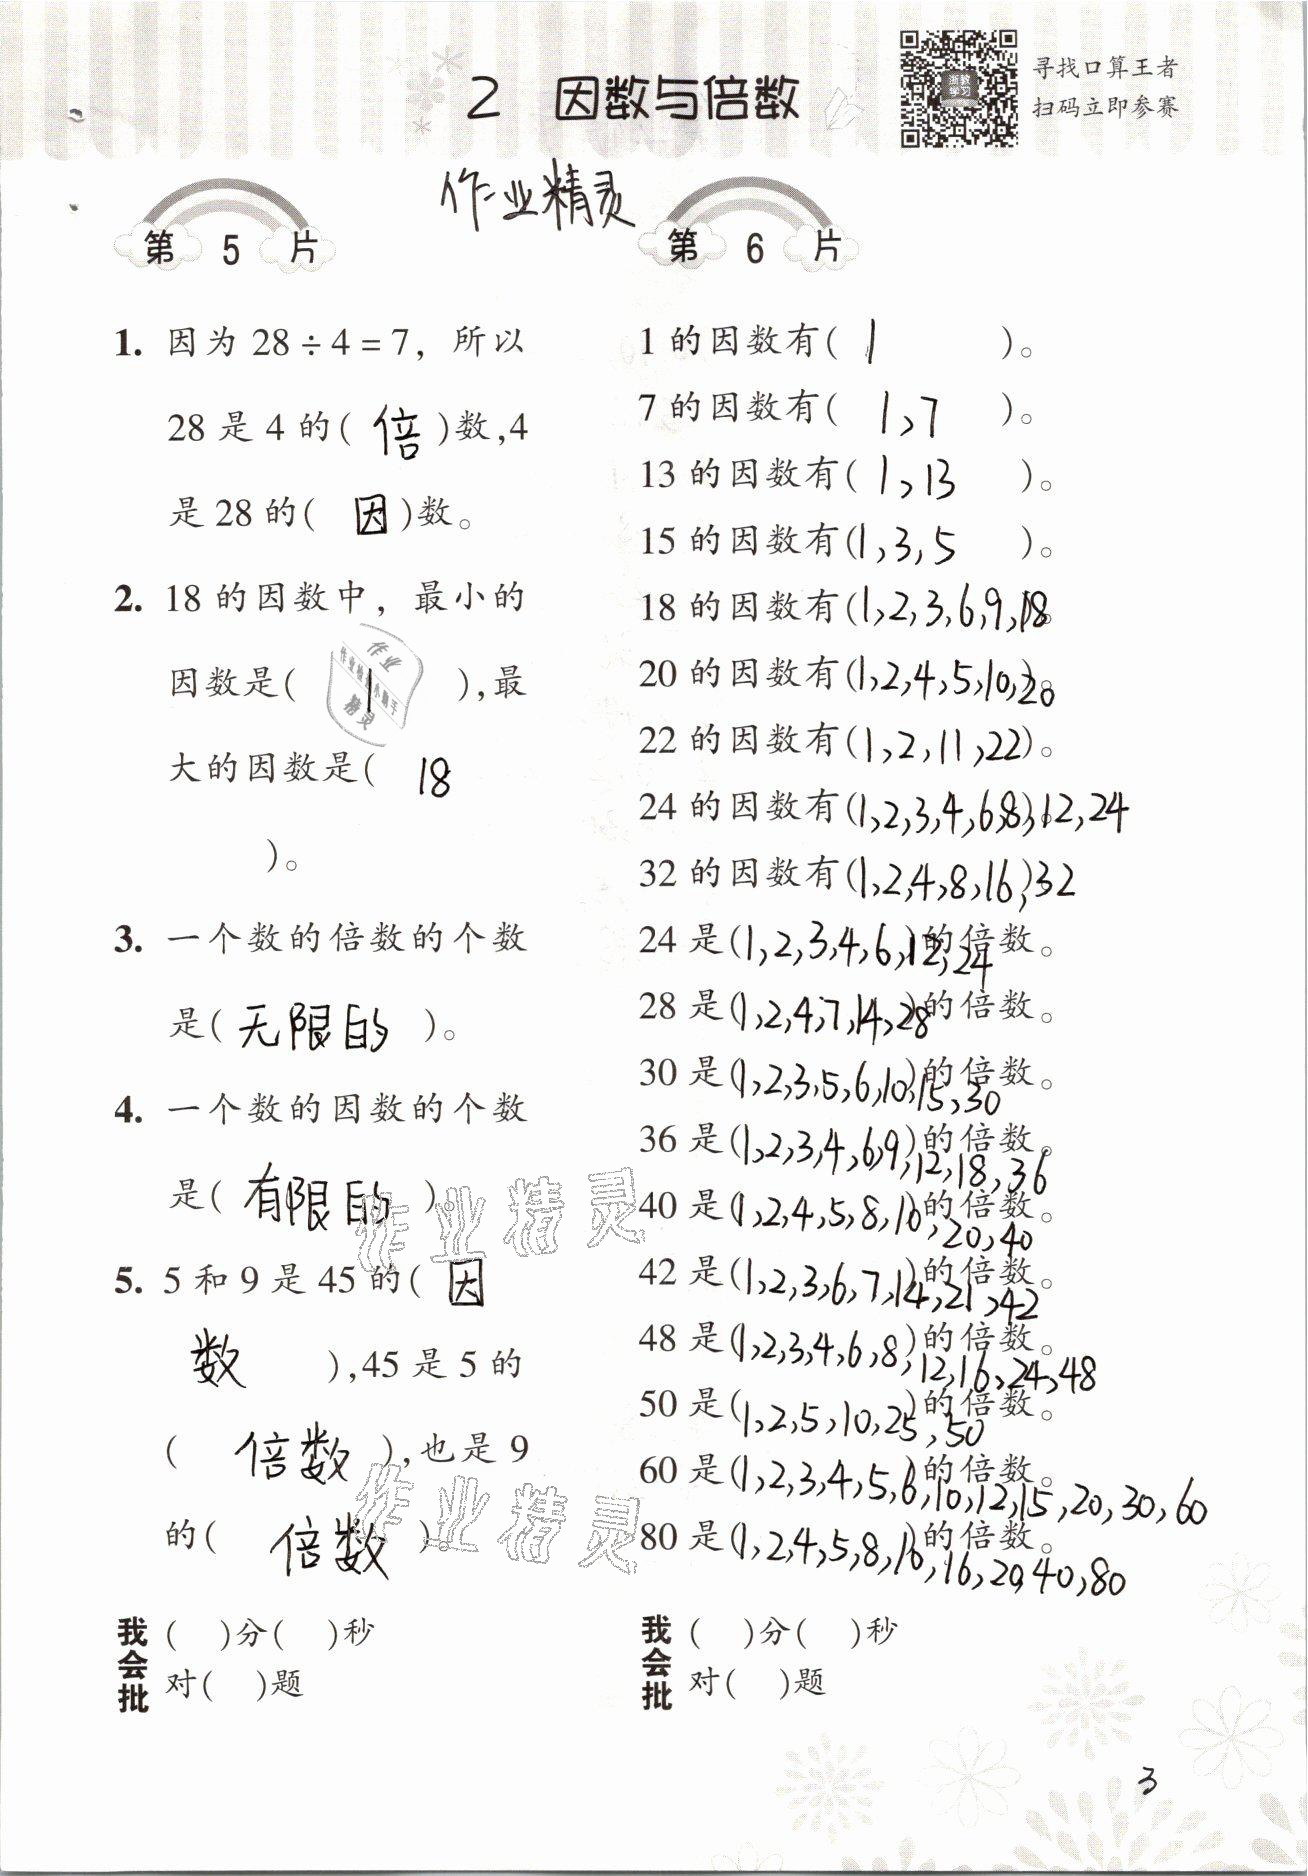 2 因数与倍数
浙教
学习
寻找口算王者
扫码立即参赛
作业精灵
第 5 片
1. 因为 28 ÷ 4 = 7，所以
28 是 4 的( 倍 )数,4
是 28 的( 因 )数。
2. 18 的因数中，最小的
因数是( 1 ),最
大的因数是( 18
)。
3. 一个数的倍数的个数
是( 无限的 )。
4. 一个数的因数的个数
是( 有限的 )。
5. 5 和 9 是 45 的( 因
数 ),45 是 5 的
( 倍数 ),也是 9
的( 倍数 )。
我会批
( )分( )秒
对( )题
第 6 片
1 的因数有( 1 )。
7 的因数有( 1,7 )。
13 的因数有( 1,13 )。
15 的因数有(1,3,5 )。
18 的因数有(1,2,3,6,9,18
20 的因数有(1,2,4,5,10,20)。
22 的因数有(1,2,11,22)。
24 的因数有(1,2,3,4,6,8,12,24
32 的因数有(1,2,4,8,16,32
24 是(1,2,3,4,6,12,24)的倍数。
28 是(1,2,4,7,14,28)的倍数。
30 是(1,2,3,5,6,10,15,30)的倍数。
36 是(1,2,3,4,6,9,12,18,36)的倍数。
40 是(1,2,4,5,8,10,20,40)的倍数。
42 是(1,2,3,6,7,14,21,42)的倍数。
48 是(1,2,3,4,6,8,12,16,24,48)的倍数。
50 是(1,2,5,10,25,50)的倍数。
60 是(1,2,3,4,5,6,10,12,15,20,30,60)的倍数。
80 是(1,2,4,5,8,10,16,20,40,80)的倍数。
我会批
( )分( )秒
对( )题
作业
精灵
作业精灵
作业精灵
3